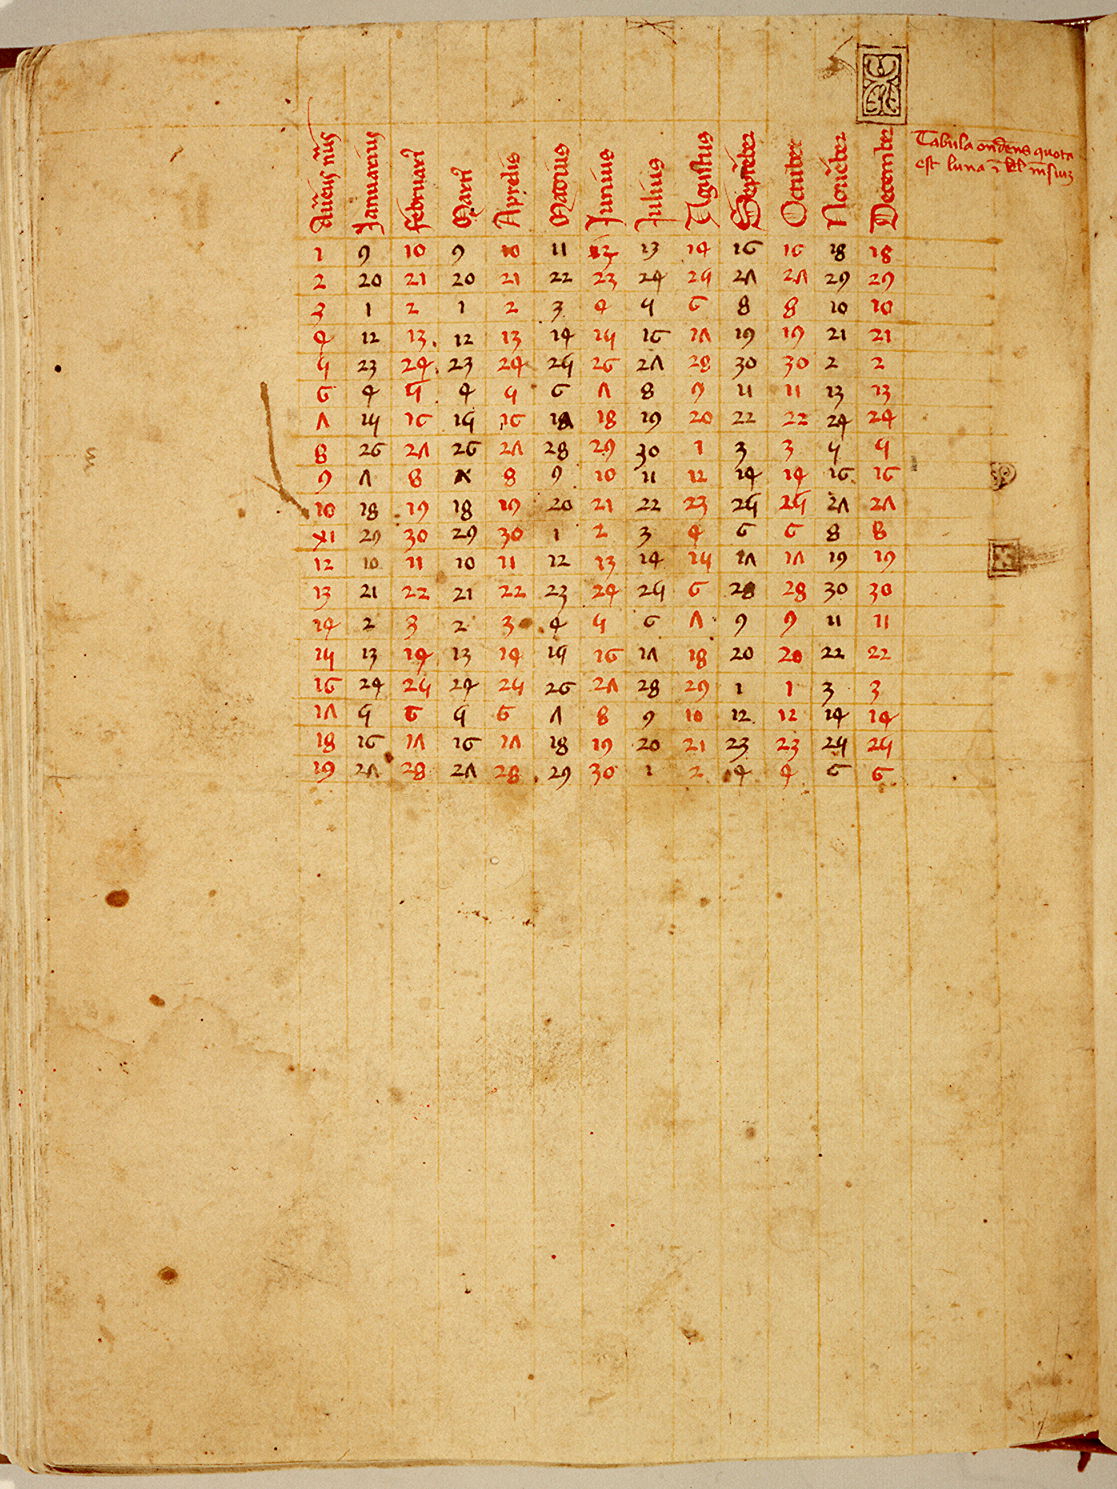 Aūeus nūs Januarius februari Marti Aprelis Madius Junius Julius Agustus Septēber Octuber Novēber December
Tabula ondens quota
est luna ī kl mēsiuʒ
1 9 10 9 10 11 12 13 14 16 16 18 18
2 20 21 20 21 22 23 24 25 27 27 29 29
3 1 2 1 2 3 4 5 6 8 8 10 10
4 12 13 12 13 14 15 16 17 19 19 21 21
5 23 24 23 24 25 26 27 28 30 30 2 2
6 4 5 4 5 6 7 8 9 11 11 13 13
7 15 16 15 16 17 18 19 20 22 22 24 24
8 26 27 26 27 28 29 30 1 3 3 5 5
9 7 8 7 8 9 10 11 12 14 14 16 16
10 18 19 18 19 20 21 22 23 25 25 27 27
XI 29 30 29 30 1 2 3 4 6 6 8 8
12 10 11 10 11 12 13 14 15 17 17 19 19
13 21 22 21 22 23 24 25 6 28 28 30 30
14 2 3 2 3 4 5 6 7 9 9 11 11
15 13 14 13 14 15 16 17 18 20 20 22 22
16 24 25 24 25 26 27 28 29 1 1 3 3
17 5 6 5 6 7 8 9 10 12 12 14 14
18 16 17 16 17 18 19 20 21 23 23 25 25
19 27 28 27 28 29 30 1 2 4 4 6 6